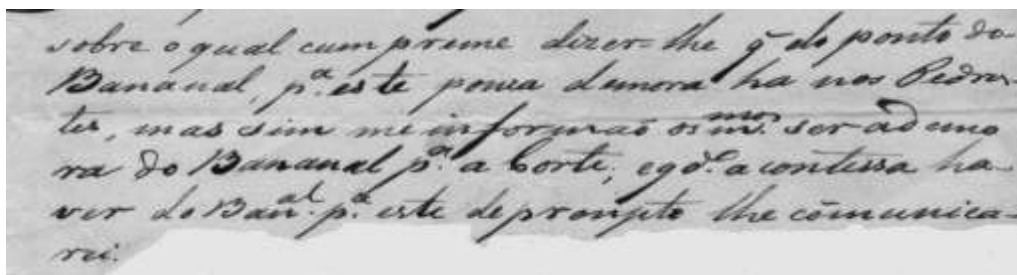 sobre o qual cumpreme dizer-lhe q̃ do ponto do
Bananal, p.ª este pouca demora ha nos Pedes-
tes, mas sim me informaõ os m.mos ser a demo
ra do Bananal p.ª a Corte, e qd.º acontessa ha-
ver do Ban.al p.ª este de prompto lhe cõmunica-
rei.